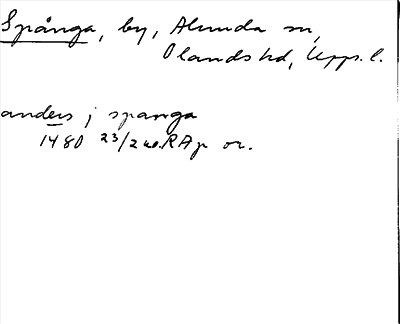 Spånga, by, Almunda sn,
Olands hd, Upps. l.
anders j spanga
1480 23/2 RAp or.